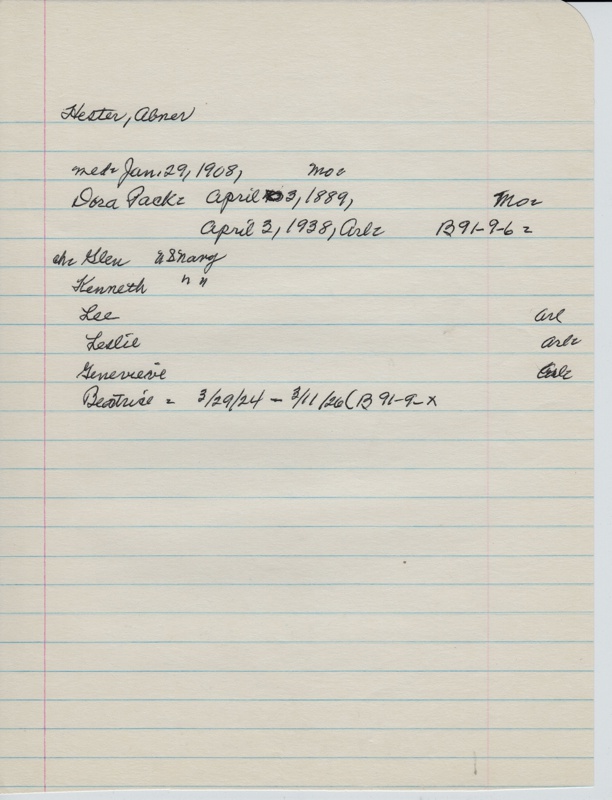 Hester, Abner
med= Jan. 29, 1908, Mo=
Dora Pack= April 3, 1889, Mo=
April 3, 1938, Arl= B 91-9-6=
ch= Glen
Kenneth " "
Lee Arl
Leslie Arl=
Genevieve Arl=
Beatrice = 3/29/24 - 3/11/26 (B 91-9-x